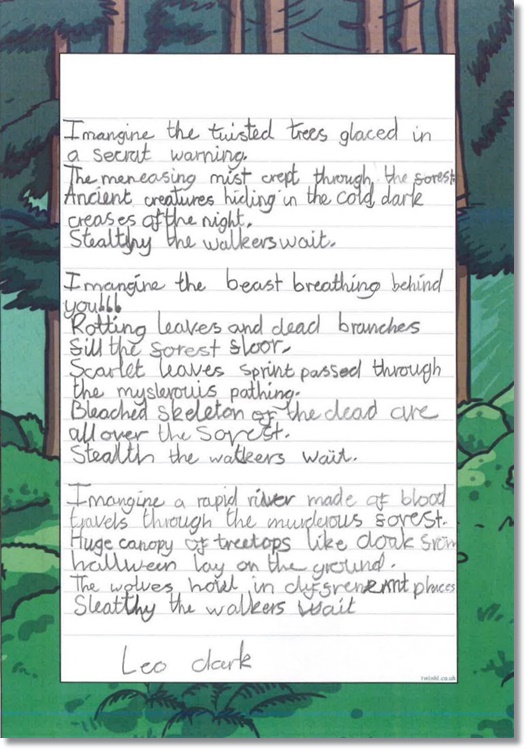 Imangine the twisted trees glaced in
a secrat warning.
The meneasing mist crept through, the forest
Ancient creatures hiding in the cold, dark
creases of the night.
Stealthy the walkers wait.
Imangine the beast breathing behind
you!!!
Rotting leaves and dead branches
fill the forest floor.
Scarlet leaves sprint passed through
the mysterouis pathing.
Bleached skeleton of the dead are
all over the forest.
Stealth the walkers wait.
Imangine a rapid river made of blood
travels through the murderous forest.
Huge canopy of treetops like cloak from
hallween lay on the ground.
The wolves howl in places
Sleatthy the walkers wait
Leo clark
twinkl.co.uk